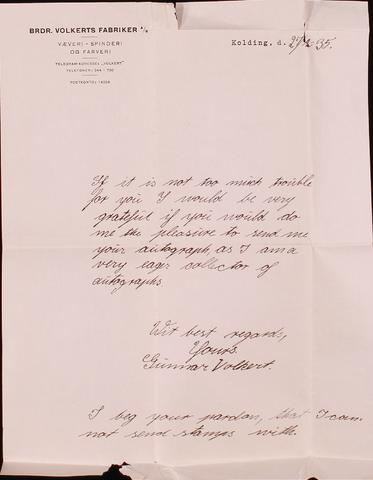 BRDR. VOLKERTS FABRIKER A/S
VÆVERI - SPINDERI
OG FARVERI
TELEGRAM-ADRESSE: „VOLKERT”
TELEFONER: 544 - 730
POSTKONTO: 14224
Kolding, d. 27/2 35.
If it is not too much trouble
for you I would be very
grateful if you would do
me the pleasure to send me
your autograph, as I am a
very eager collector of
autographs.
Wit best regards,
Yours.
Gunnar Volkert.
I beg your pardon, that I can
not send stamps with.